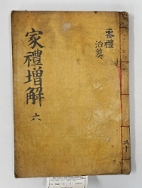 家禮增解 六
喪禮
治葬